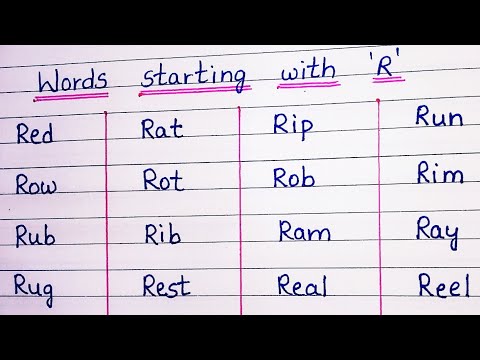 Words starting with 'R'
Red Rat Rip Run
Row Rot Rob Rim
Rub Rib Ram Ray
Rug Rest Real Reel